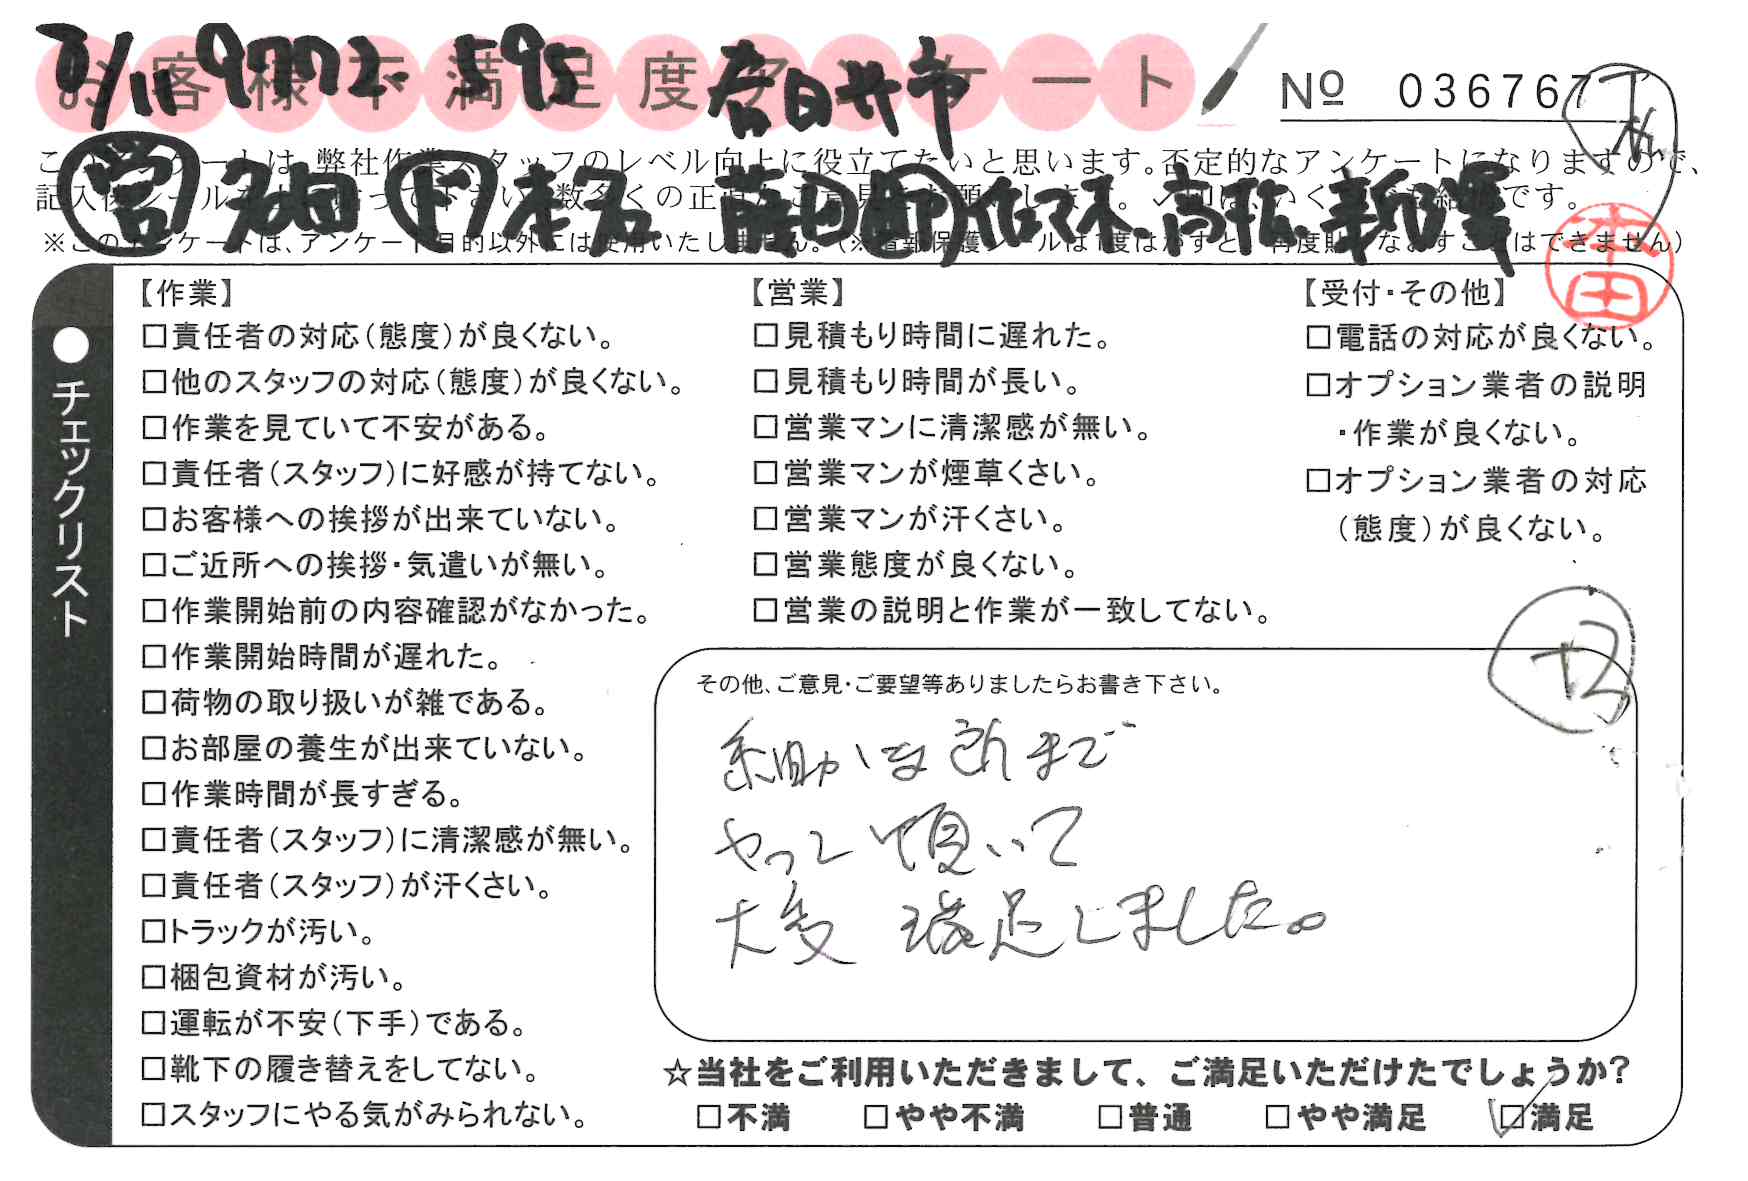 8/11 9772 595 春日井市
お客様不満足度アンケート
Nº 036767
このアンケートは、弊社作業スタッフのレベル向上に役立てたいと思います。否定的なアンケートになりますので、
記入後シールを上に貼って下さい。数多くの正直なご意見をお願いします。✓印は、いくつでも結構です。
営 ド 藤田 助 佐々木、高松、新澤
※このアンケートは、アンケート目的以外には使用いたしません。(※情報保護シールは1度はがすと、再度貼りなおすことはできません)
本田
●チェックリスト
【作業】
□責任者の対応(態度)が良くない。
□他のスタッフの対応(態度)が良くない。
□作業を見ていて不安がある。
□責任者(スタッフ)に好感が持てない。
□お客様への挨拶が出来ていない。
□ご近所への挨拶・気遣いが無い。
□作業開始前の内容確認がなかった。
□作業開始時間が遅れた。
□荷物の取り扱いが雑である。
□お部屋の養生が出来ていない。
□作業時間が長すぎる。
□責任者(スタッフ)に清潔感が無い。
□責任者(スタッフ)が汗くさい。
□トラックが汚い。
□梱包資材が汚い。
□運転が不安(下手)である。
□靴下の履き替えをしてない。
□スタッフにやる気がみられない。
【営業】
□見積もり時間に遅れた。
□見積もり時間が長い。
□営業マンに清潔感が無い。
□営業マンが煙草くさい。
□営業マンが汗くさい。
□営業態度が良くない。
□営業の説明と作業が一致してない。
【受付・その他】
□電話の対応が良くない。
□オプション業者の説明
・作業が良くない。
□オプション業者の対応
(態度)が良くない。
その他、ご意見・ご要望等ありましたらお書き下さい。
細かな所まで
やって頂いて
大変 満足しました。
☆当社をご利用いただきまして、ご満足いただけたでしょうか?
□不満 □やや不満 □普通 □やや満足 ☑満足